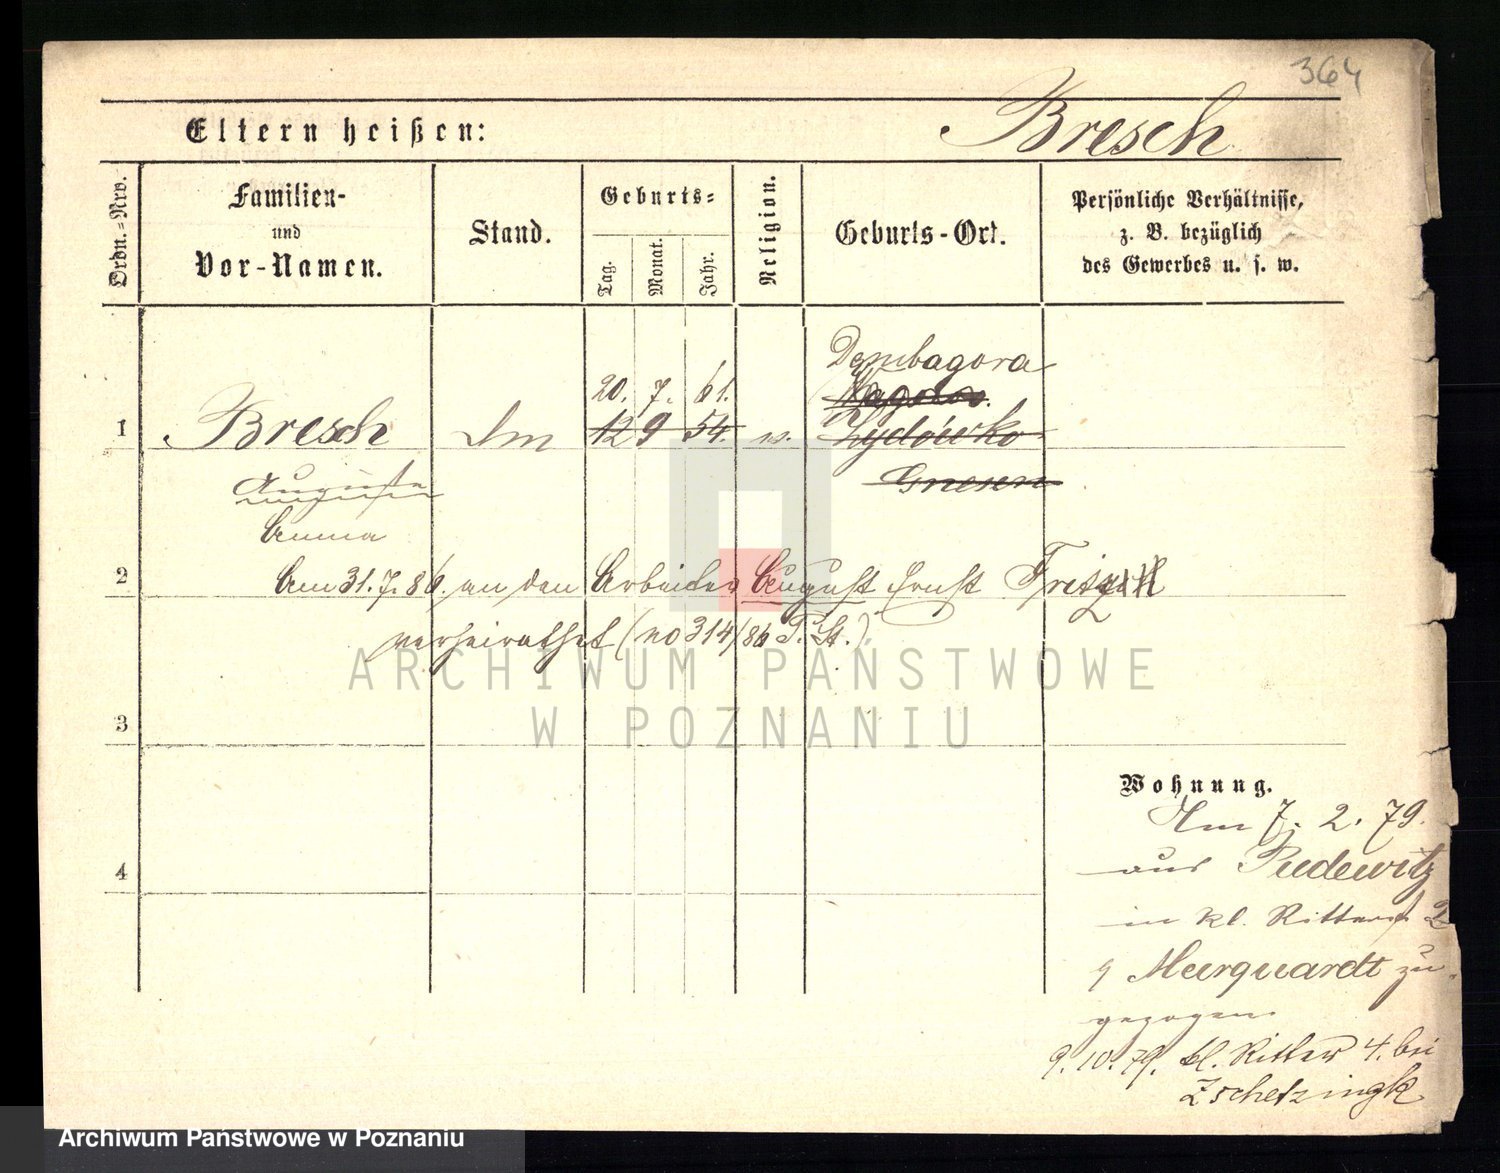 364
Eltern heißen: Bresch
Ordn.-Nro.
Familien-
und
Vor-Namen.
Stand.
Geburts-
Tag.
Monat.
Jahr.
Religion.
Geburts-Ort.
Persönliche Verhältnisse,
z. B. bezüglich
des Gewerbes u. s. w.
Dembagora
20. 7. 61.
1 Bresch 12 9 54. Zydówko
Auguste Gnesen
Anna
2 Am 31.7.86. an den Arbeiter August Ernst
verheirathet (No 314/86 P. St.)
ARCHIWUM PAŃSTWOWE
W POZNANIU
3
Wohnung.
Am 7. 2. 79.
4
aus Pudewitz
in kl. Ritterst 2
Marquardt zu-
gezogen.
9.10.79. kl. Ritter 4. bei
Zschetzingk
Archiwum Państwowe w Poznaniu